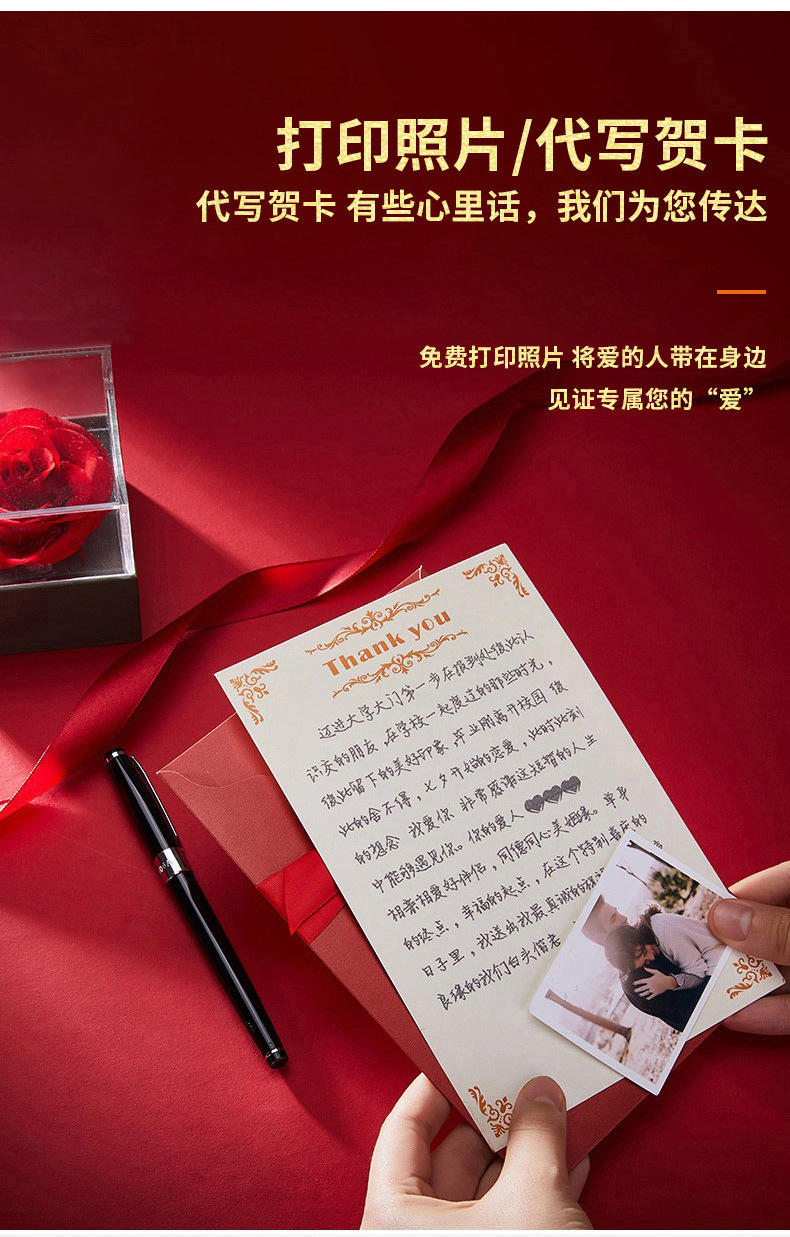 打印照片/代写贺卡
代写贺卡 有些心里话，我们为您传达
免费打印照片 将爱的人带在身边
见证专属您的“爱”
Thank you
迈进大学大门第一步在报到处彼此认
识交的朋友，在学校一起度过的那些时光，
彼此留下的美好印象，毕业刚离开校园 彼
此的舍不得，七夕开始的恋爱，此时此刻
的想念 我爱你 非常感谢这短暂的人生
中能够遇见你。你的爱人
相亲相爱好伴侣，同德同心美姻缘。单身
的终点，幸福的起点，在这个特别喜庆的
日子里，我送出我最真诚的祝
良缘的我们白头偕老